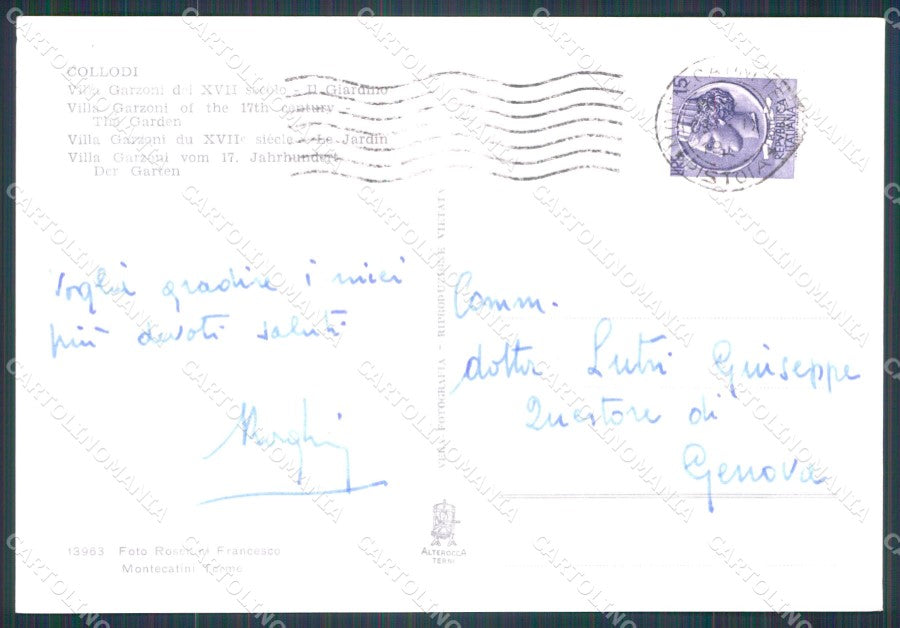 COLLODI
Villa Garzoni del XVII secolo - Il Giardino
Villa Garzoni of the 17th century
The Garden
Villa Garzoni du XVIIe siècle - Le Jardin
Villa Garzoni vom 17. Jahrhundert
Der Garten
15
REPUBBLICA
ITALIANA
Voglia gradire i miei
più devoti saluti
VERA FOTOGRAFIA - RIPRODUZIONE VIETATA
Comm.
dottor Lutri Giuseppe
Questore di
Genova
13963 Foto Rosellini Francesco
Montecatini Terme
ALTEROCCA
TERNI
CARTOLINOMANIA